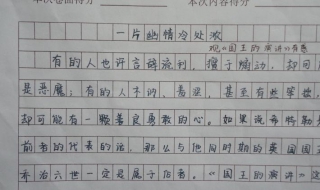 本次卷面得分 本次内容得分
一片幽情冷处浓
观《国王的演讲》有感
有的人也许言辞流利、擅于煽动，却可
是恶魔；有的人不讷、羞涩，甚至有些笨拙，
却可能有一颗善良勇敢的心。如果说希特勒
前者的代表的话，那么与他同时期的英国国王
乔治六世一定是属于后者。《国王的演讲》这